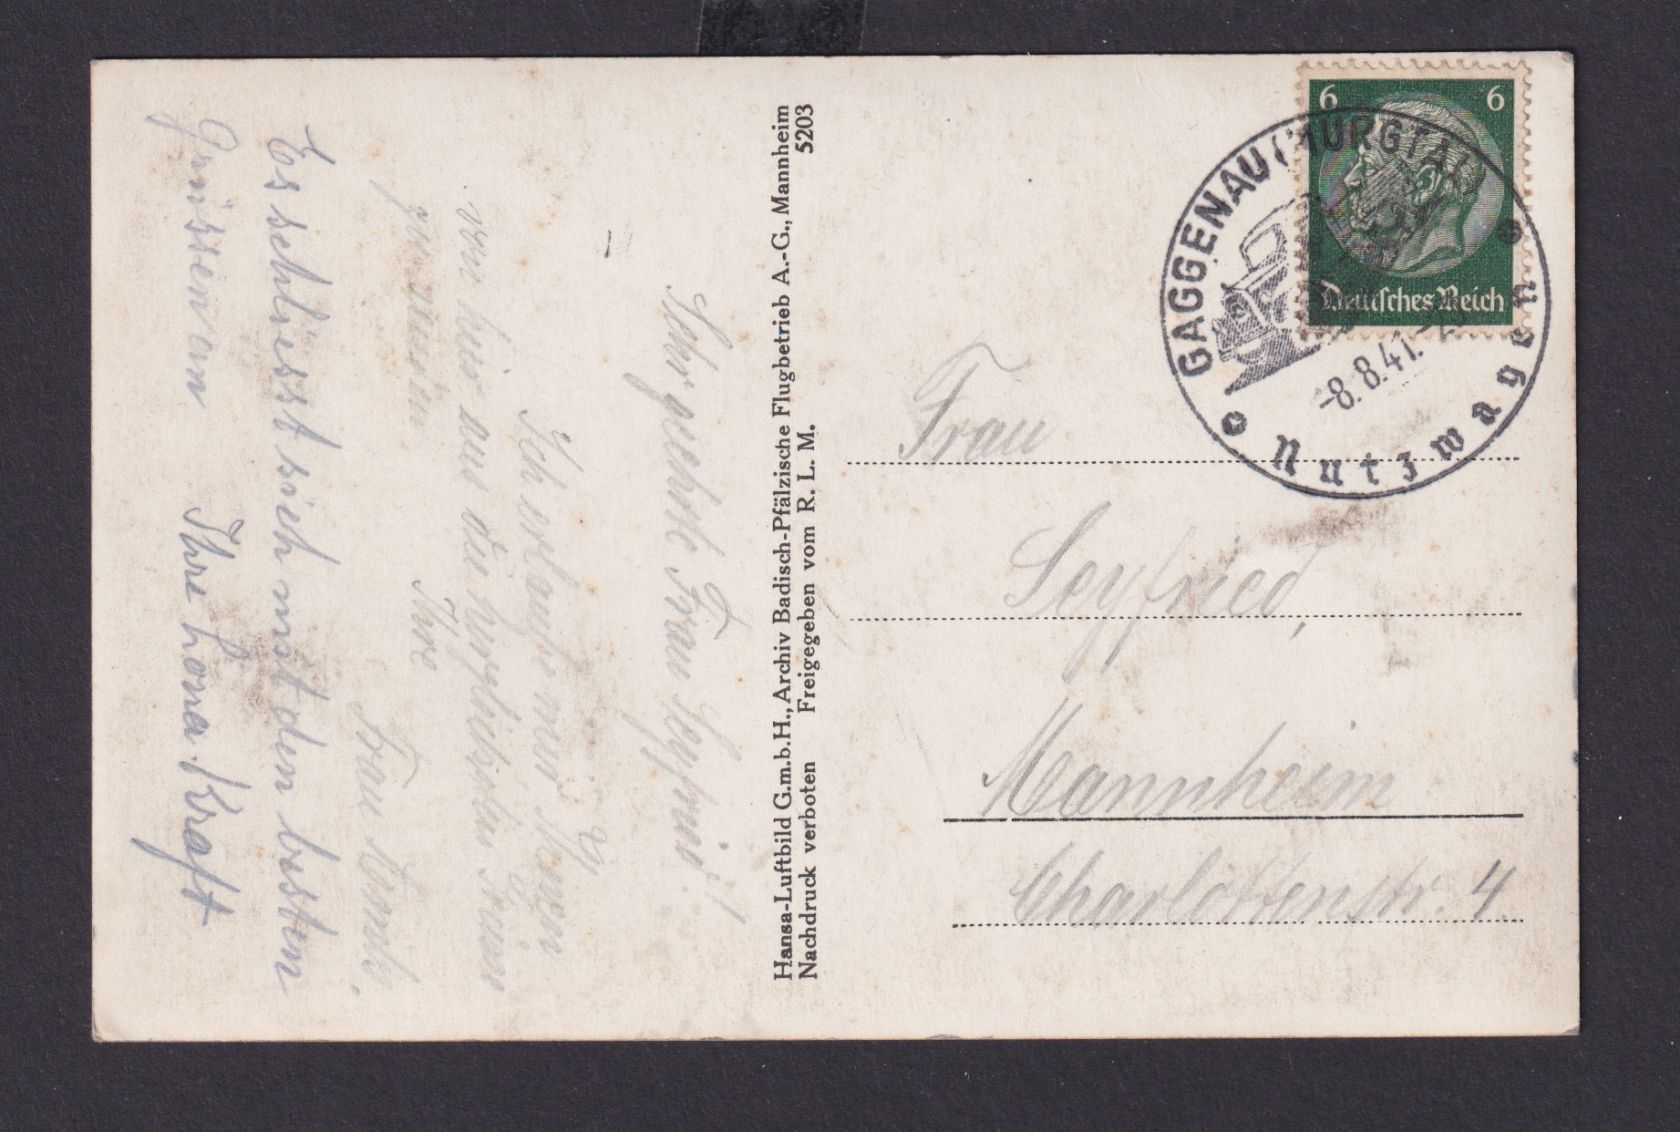 Sehr geehrte Frau Seyfried!
Ich erlaube mir Ihnen
von hier aus die herzlichsten Grüsse
zu senden
Ihre
Frau
Es schliesst sich mit den besten
Grüssen an Ihre Lona Kraft
Hansa-Luftbild G.m.b.H., Archiv Badisch-Pfälzische Flugbetrieb A.-G., Mannheim
Nachdruck verboten Freigegeben vom R. L. M. 5203
6 6
Deutsches Reich
GAGGENAU (MURGTAL)
-8.8.41.
Nutzwagen
Frau
Seyfried,
Mannheim
Charlottenstr. 4